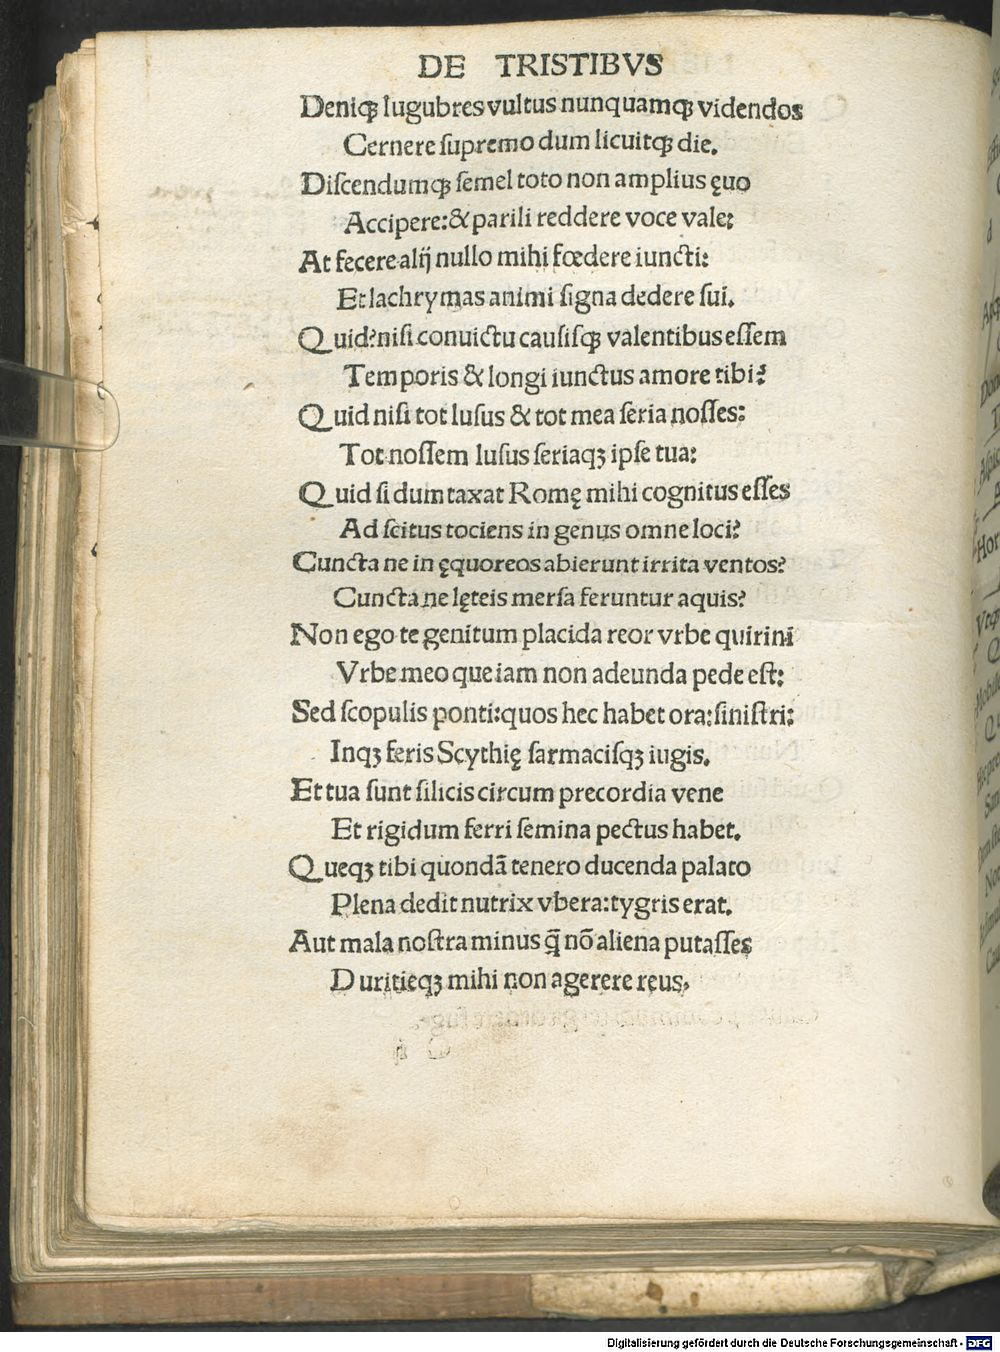 DE TRISTIBVS
Deniqꝫ lugubres vultus nunquamqꝫ videndos
Cernere ſupremo dum licuitqꝫ die.
Diſcendumqꝫ ſemel toto non amplius ęuo
Accipere: & parili reddere voce vale:
At fecere alij nullo mihi fœdere iuncti:
Et lachrymas animi ſigna dedere ſui.
Quid? niſi conuictu cauſiſqꝫ valentibus eſſem
Temporis & longi iunctus amore tibi?
Quid niſi tot luſus & tot mea ſeria noſſes:
Tot noſſem luſus ſeriaqꝫ ipſe tua:
Quid ſi dum taxat Romę mihi cognitus eſſes
Ad ſcitus tociens in genus omne loci?
Cuncta ne in ęquoreos abierunt irrita ventos?
Cuncta ne lęteis merſa feruntur aquis?
Non ego te genitum placida reor vrbe quirini
Vrbe meo que iam non adeunda pede eſt:
Sed ſcopulis ponti: quos hec habet ora: ſiniſtri:
Inqꝫ feris Scythię ſarmaciſqꝫ iugis.
Et tua ſunt ſilicis circum precordia vene
Et rigidum ferri ſemina pectus habet.
Queqꝫ tibi quondā tenero ducenda palato
Plena dedit nutrix vbera: tygris erat.
Aut mala noſtra minus q̄ nō aliena putaſſes
Duritieqꝫ mihi non agerere reus.
Digitalisierung gefördert durch die Deutsche Forschungsgemeinschaft - DFG